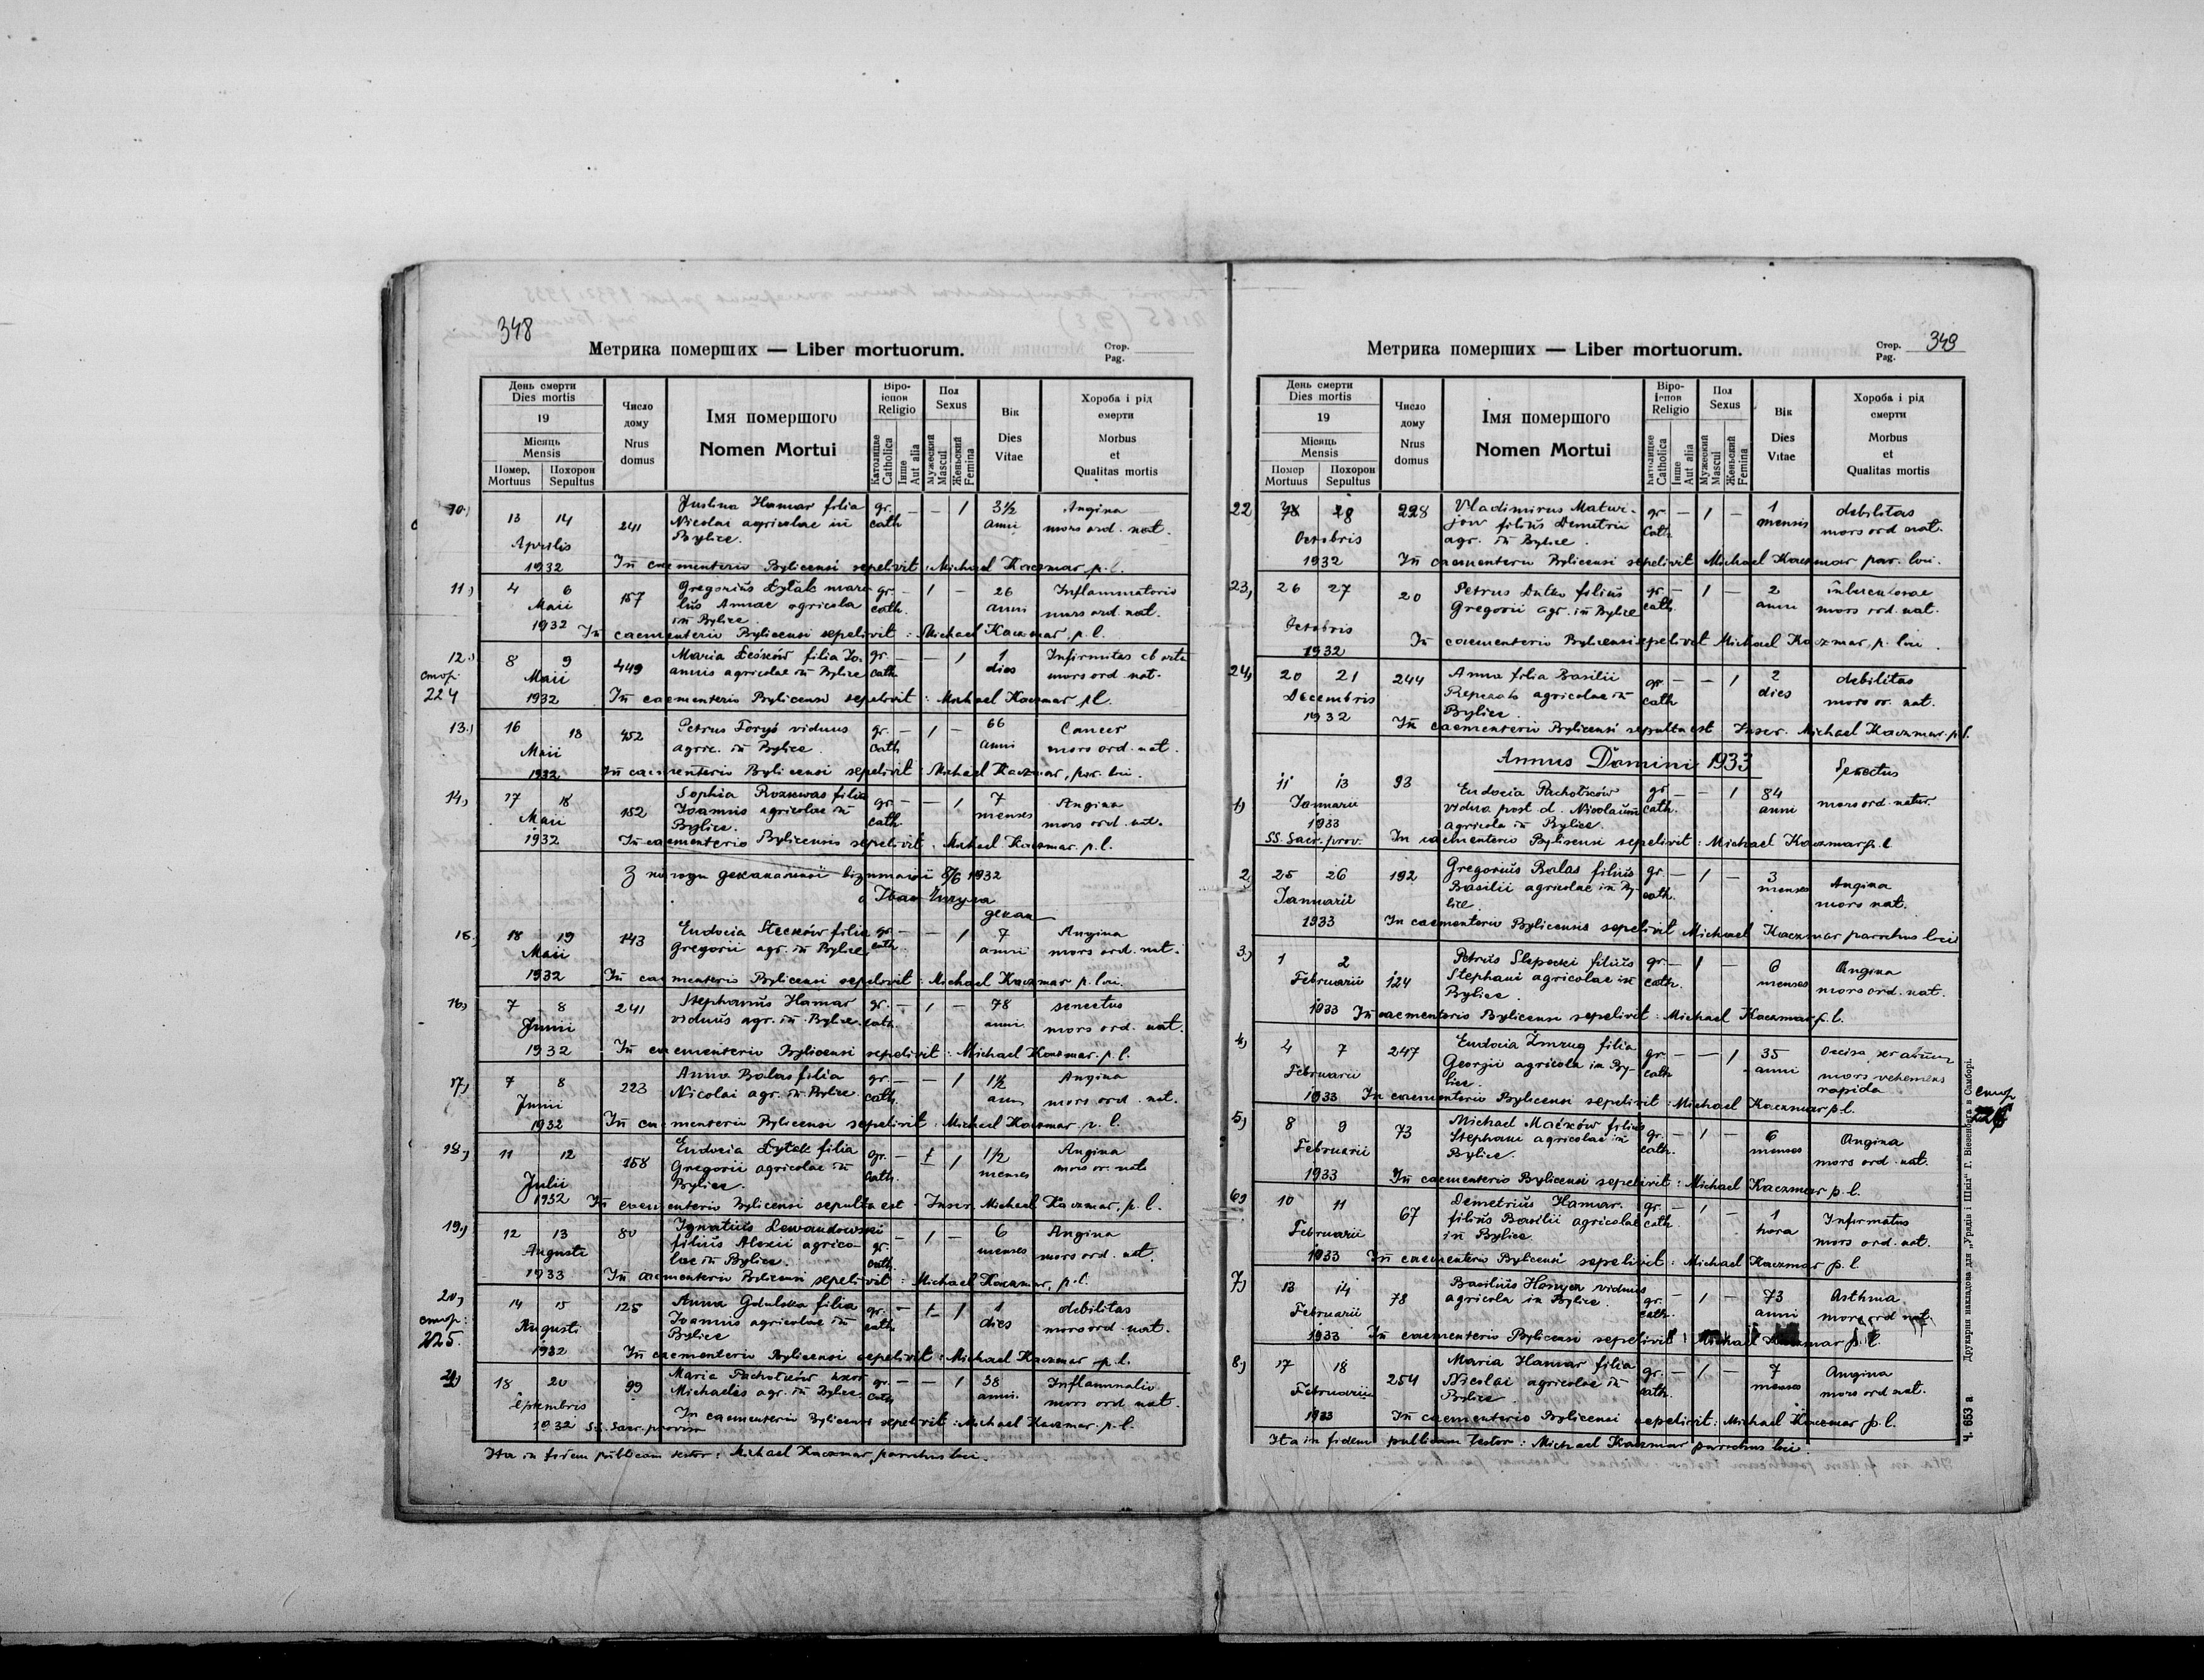 348
Метрика померших — Liber mortuorum.
Стор.
Pag.
День смерти
Dies mortis
19
Місяць
Mensis
Помер.
Mortuus
Похорон
Sepultus
Число
дому
Nrus
domus
Імя помершого
Nomen Mortui
Віро-
ісповід
Religio
Католицке
Catholica
Інше
Aut alia
Пол
Sexus
Мужеский
Mascul.
Женьский
Femina
Вік
Dies
Vitae
Хороба і рід
смерти
Morbus
et
Qualitas mortis
10.) 13 14 241 Justina Hamar filia gr. — — 1 3½ Angina
Aprilis Nicolai agricolae in cath anni mors ord. nat.
Bylice.
1932 In caementerio Bylicensi sepelivit : Michael Kaczmar p. l.
11.) 4 6 157 Gregorius Dytak mari- gr. — 1 — 26 Inflammatorio
Maii tus Annae agricola cath. anni mors ord. nat.
in Bylice
1932 In caementerio Bylicensi sepelivit : Michael Kaczmar, p. l.
12.) 8 9 449 Maria Leśków filia Jo- gr. — — 1 1 Infirmitas
стор. Maii annis agricolae in Bylice cath dies mors ord nat.
224 1932 In caementerio Bylicensi sepelivit : Michael Kaczmar p l.
13.) 16 18 452 Petrus Forys viduus gr. — 1 — 66 Cancer
Maii agric. in Bylice. cath anni mors ord. nat.
1932 In caementerio Bylicensi sepelivit : Michael Kaczmar, par. loci.
14.) 17 18 152 Sophia Rozkwas filia gr. — — 1 7 Angina
Maii Joannis agricolae in cath. menses mors ord. nat.
Bylice.
1932 In caementerio Bylicensis sepelivit : Michael Kaczmar. p. l.
З нагоди деканальної візитації 8/6 1932
декан
15.) 18 19 143 Eudocia Steckow filia gr. — — 1 7 Angina
Maii Gregorii agr. in Bylice cath anni mors ord. nat.
1932 In caementerio Bylicensi sepelivit : Michael Kaczmar p. loci.
16.) 7 8 241 Stephanus Hamar gr. — 1 — 78 senectus
Junii viduus agr. in Bylice. cath. anni mors ord. nat.
1932 In caementerio Bylicensi sepelivit : Michael Kaczmar. p. l.
17.) 7 8 223 Anna Balas filia gr. — — 1 1½ Angina
Junii Nicolai agr. in Bylice. cath. anni mors ord. nat.
1932 In caementerio Bylicensi sepelivit : Michael Kaczmar. p. l.
18.) 11 12 158 Eudocia Dytak filia gr. — 1 1½ Angina
Julii Gregorii agricolae in cath. menses mors or. nat.
Bylice.
1932 In caementerio Bylicensi sepulta est. Inscr. Michael Kaczmar, p. l.
19.) 12 13 80 Ignatius Lewandowski gr. — 1 — 6 Angina
Augusti filius Alexii agrico- cath. menses mors ord. nat.
lae in Bylice.
1933 In caementerio Bylicensi sepelivit : Michael Kaczmar, p. l.
20.) 14 15 125 Anna Gdulska filia gr. — 1 1 debilitas
стор. Augusti Joannis agricolae in cath. dies mors ord. nat.
225. Bylice
1932 In caementerio Bylicensi sepelivit : Michael Kaczmar p. l.
21.) 18 20 99 Maria Pachołków uxor gr. — — 1 38 Inflammatio
Septembris Michaelis agr. in Bylice cath anni. mors ord nat.
1932 SS. Sacr. provisa In caementerio Bylicensi sepelivit : Michael Kaczmar. p. l.
Ita in fidem publicam testor : Michael Kaczmar, parochus loci.
Метрика померших — Liber mortuorum.
Стор.
Pag. 349
День смерти
Dies mortis
19
Місяць
Mensis
Помер
Mortuus
Похорон
Sepultus
Число
дому
Nrus
domus
Імя помершого
Nomen Mortui
Віро-
ісповід
Religio
Католицке
Catholica
Інше
Aut alia
Пол
Sexus
Мужеский
Mascul
Женьский
Femina
Вік
Dies
Vitae
Хороба і рід
смерти
Morbus
et
Qualitas mortis
22 28 228 Vladimirus Matwi- gr. — 1 — 1 debilitas
Octobris jow filius Demetrii cath. mensis mors ord nat.
agr. in Bylice.
1932 In caementerio Bylicensi sepelivit Michael Kaczmar par. loci.
23.) 26 27 20 Petrus Dulko filius gr. — 1 — 2 tuberculosae
Octobris Gregorii agr. in Bylice cath. anni mors ord. nat.
1932 In caementerio Bylicensi sepelivit Michael Kaczmar, p. loci.
24.) 20 21 244 Anna filia Basilii gr. — — 1 2 debilitas
Decembris agricolae in cath dies mors or. nat.
Bylice.
1932 In caementerio Bylicensi sepulta est Inscr. Michael Kaczmar. p. l.
Annus Domini 1933
1) 11 13 93 Eudocia Pachołków gr. — — 1 84 Senectus
Januarii vidua post d. Nicolaum cath. anni mors ord. natur.
1933 agricola in Bylice.
SS. Sacr. prov. In caementerio Bylicensi sepelivit : Michael Kaczmar p. l
2.) 25 26 192 Gregorius Balas filius gr. — 1 — 3 Angina
Januarii Basilii agricolae in By- cath. menses mors nat.
lice.
1933 In caementerio Bylicensis sepelivit Michael Kaczmar parochus loci
3.) 1 2 124 Petrus Slepecki filius gr. — 1 — 6 Angina
Februarii Stephani agricolae in cath. menses mors ord. nat.
Bylice.
1933 In caementerio Bylicensi sepelivit : Michael Kaczmar p. l.
4.) 4 7 247 Eudocia Żmrug filia gr. — — 1 35 Occisa
Februarii Georgii agricola in By- cath anni mors vehemens
lice. rapida
1933 In caementerio Bylicensi sepelivit : Michael Kaczmar p. l.
стор.
5.) 8 9 73 Michael Maćków filius gr. — 1 — 6 Angina
Februarii Stephani agricolae in cath. menses mors ord. nat.
Bylice.
1933 In caementerio Bylicensi sepelivit : Michael Kaczmar p. l.
6.) 10 11 67 Demetrius Hamar. gr. — 1 — 1 Infirmitas
Februarii filius Basilii agricolae cath. hora mors ord. nat.
in Bylice.
1933 In caementerio Bylicensi sepelivit : Michael Kaczmar p. l.
7.) 13 14 78 Basilius Hanyca viduus gr. — 1 — 73 Asthma
Februarii agricola in Bylice. cath. anni mors ord nat.
1933 In caementerio Bylicensi sepelivit : Michael Kaczmar p. l.
8.) 17 18 254 Maria Hamar filia gr. — 1 — 7 Angina
Februarii Nicolai agricolae in cath. menses mors ord nat.
Bylice.
1933 In caementerio Bylicensi sepelivit : Michael Kaczmar p. l.
Ita in fidem publicam testor : Michael Kaczmar parochus loci
Ч. 653 а Друкарня накладова для „Урядів і Шкіл" Г. Вієсенберґа в Самборі.